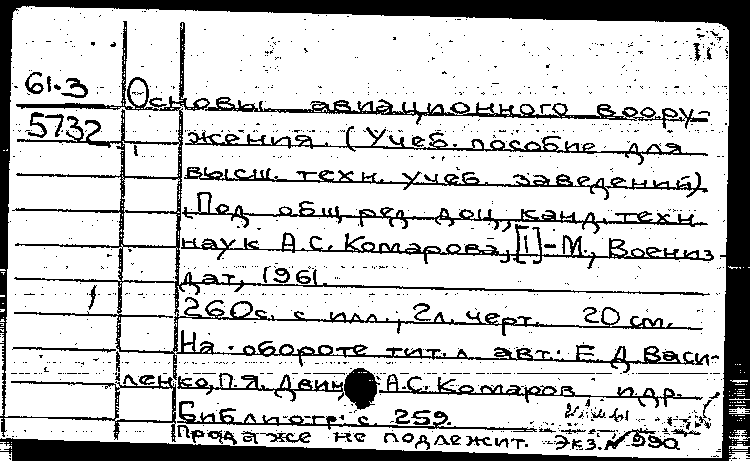 61-3
5732
Основы авиационного воору-
жения. (Учеб. пособие для
высш. техн. учеб. заведений).
Под общ. ред. доц., канд. техн.
наук А.С. Комарова, [I] - М., Воениз-
дат, 1961.
260с. с илл., 2л. черт. 20 см.
На обороте тит. л. авт.: Е.Д. Васи-
ленко, П.Я. Двин А.С. Комаров и др.
Библиогр: с. 259.
Продаже не подлежит. Экз. № 990